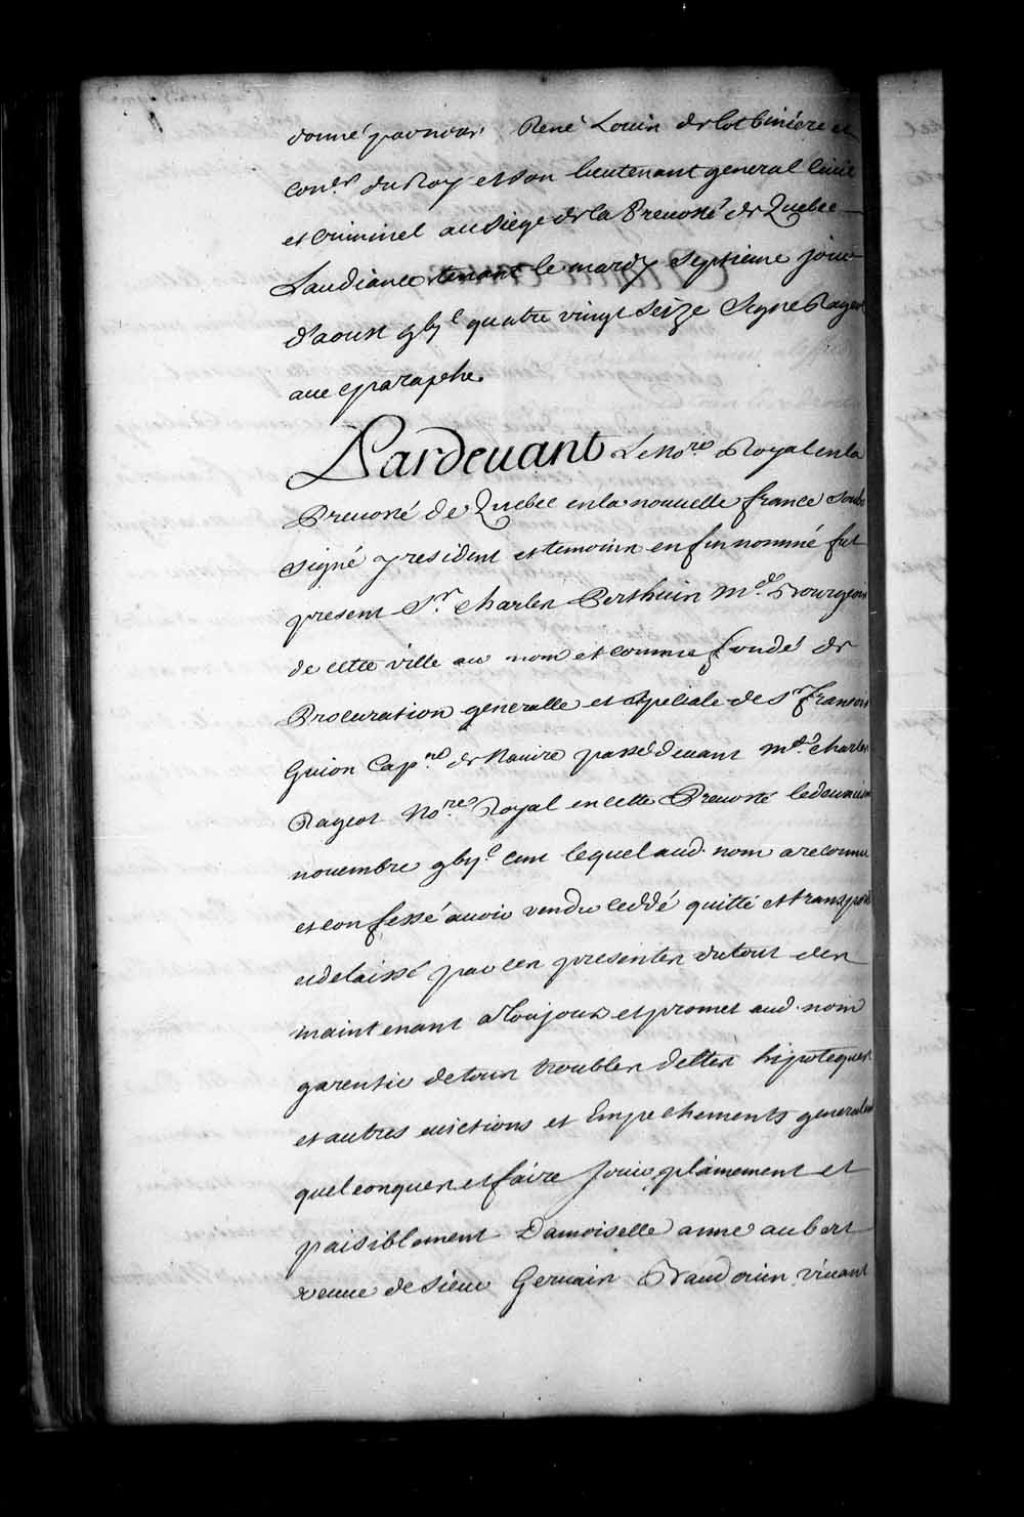 donné par nous René Louis de lotbiniere et
con.er du Roy et son lieutenant general Ciuil
et Criminel au siege de la Preuosté de Quebec
Laudiance tenant le mardy septieme jour
d'aoust gbyc quatre vingt seize Signé Rageot
auec paraphe.
Pardeuant Le No.re Royal en la
Preuosté de Quebec en la nouuelle france soubs
signé y resident et temoins en fin nommé fut
present S.r Charles Perthuis M.d Bourgeois
de cette ville au nom et comme fondé de
Procuration generalle et speciale de Sr francois
Guion Cap.ne de Nauire passé deuant Me Charles
Rageot No.re Royal en cette Preuosté le
nouembre gbyc cent lequel aud. nom a reconnu
et confessé auoir vendu ceddé quitté et transporté
et delaissé par ces presentes du tout des
maintenant a toujours et promet aud. nom
garentir de tous troubles dettes hipoteques
et autres euictions et Empechements generalem
quelconques et faire Jouir plainement et
paisiblement Damoiselle anne aubert
veuue de sieur Geruain viuant